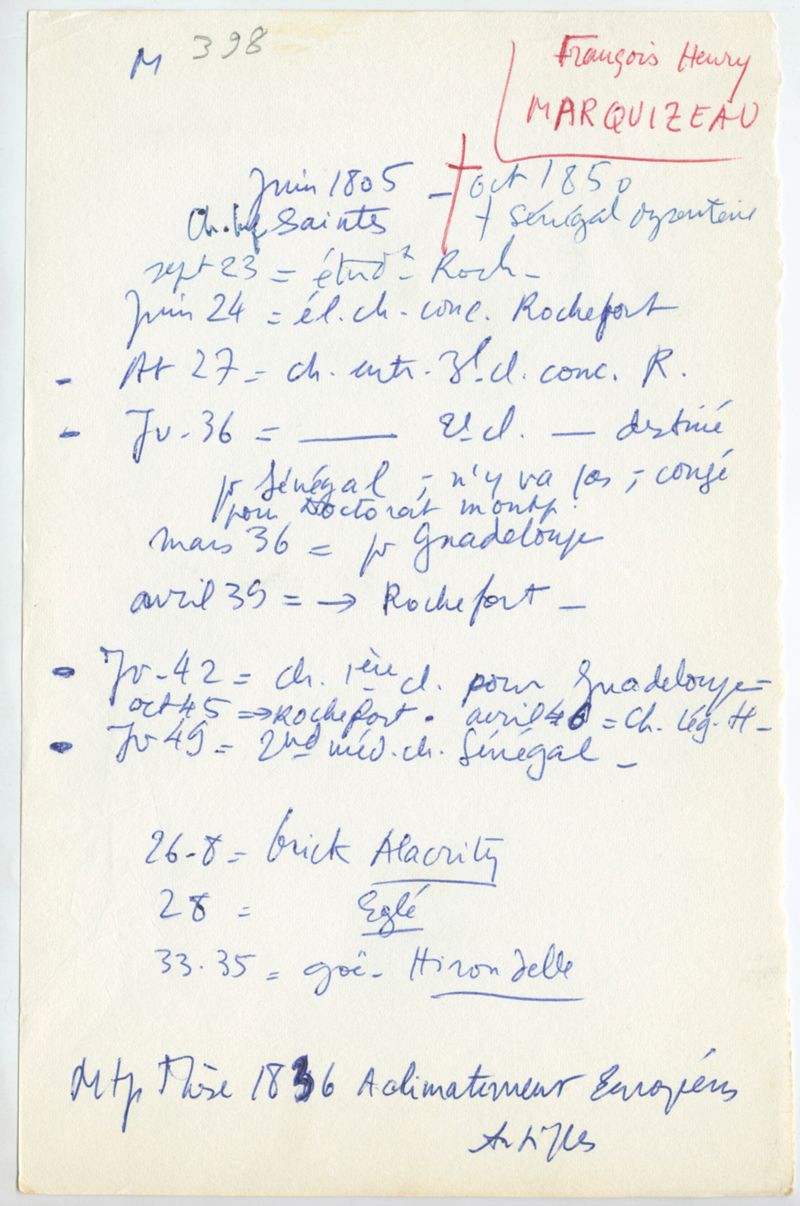 M 398
François Henry
MARQUIZEAU
Juin 1805 – † oct 1850
Ch. Inf Saintes † Sénégal dysenterie
sept 23 = étudt Roch –
Juin 24 = él. ch. conc. Rochefort
- At 27 = ch. entr. 3e cl. conc. R.
- Jv. 36 = —— 2e cl. — destiné
pr Sénégal, – n'y va pas, – congé
pour Doctorat montp.
mars 36 = pr Guadeloupe
avril 39 = → Rochefort –
- Jv. 42 = ch. 1ère cl. pour Guadeloupe =
oct 45 => Rochefort. avril 46 = Ch. Lég. H –
- Jv 49 = 2nd méd. ch. Sénégal –
26-8 = brick Alacrity
28 = Eglé
33.35 = goë- Hirondelle
Mtp Thèse 1836 Aclimatement Européens
Antilles